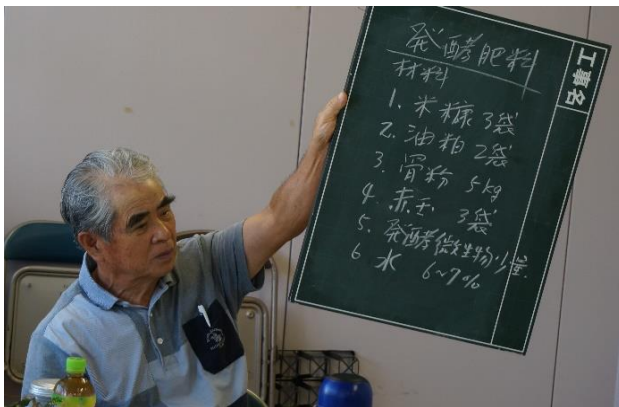 発酵肥料
材料
1. 米糠 3袋
2. 油粕 2袋
3. 骨粉 5kg
4. 赤玉 3袋
5. 発酵微生物少量
6 水 6~7%
工事名